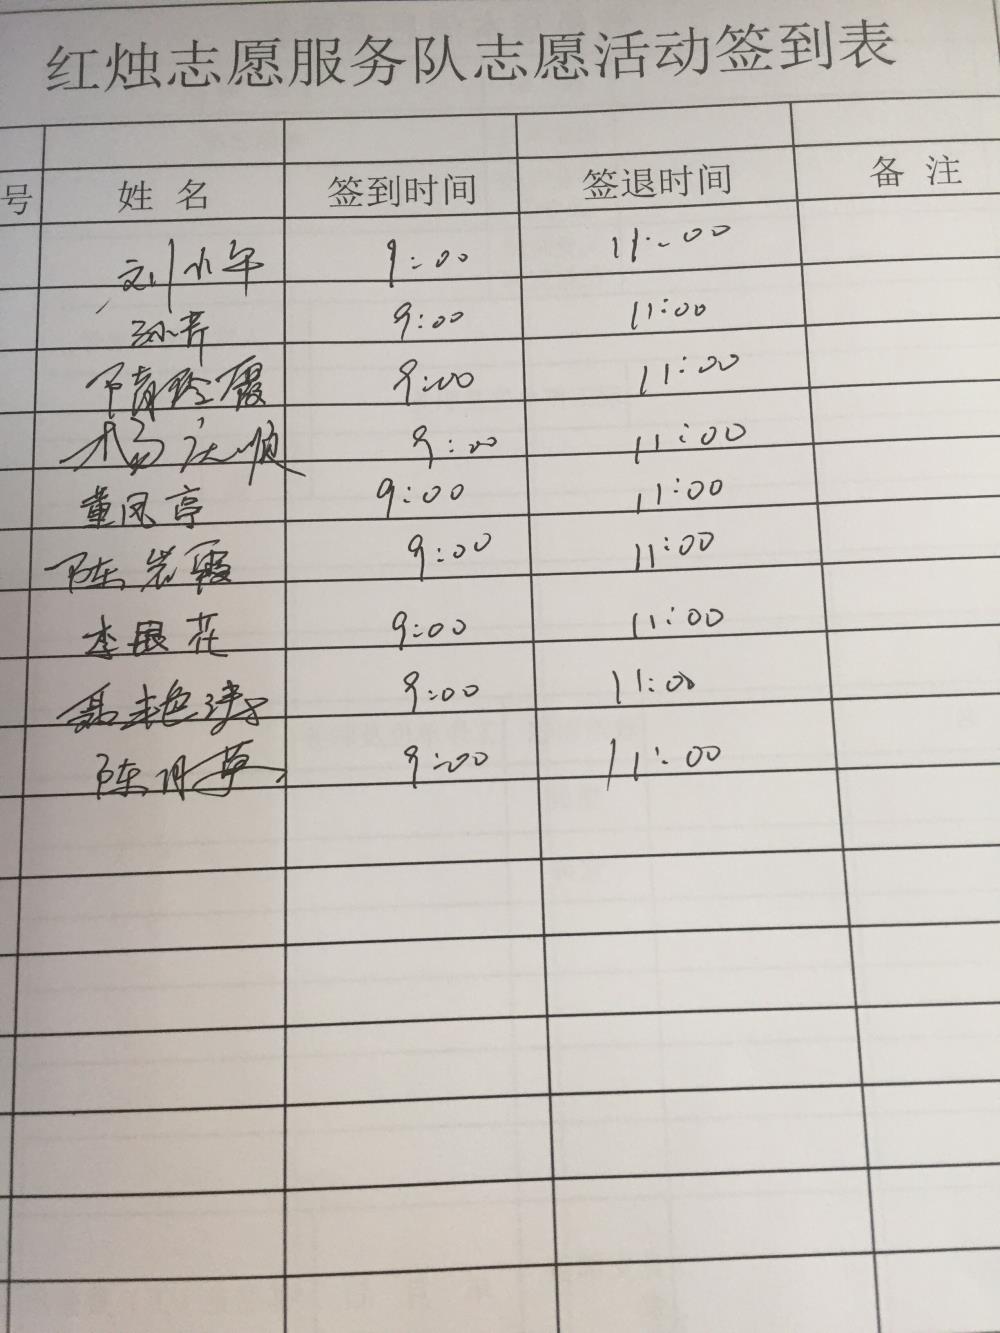 红烛志愿服务队志愿活动签到表
号 姓 名 签到时间 签退时间 备 注
刘小午 9:00 11:00
孙芹 9:00 11:00
霞 9:00 11:00
杨庆顺 9:00 11:00
董凤亭 9:00 11:00
陈岩霞 9:00 11:00
李银花 9:00 11:00
9:00 11:00
陈月英 9:00 11:00